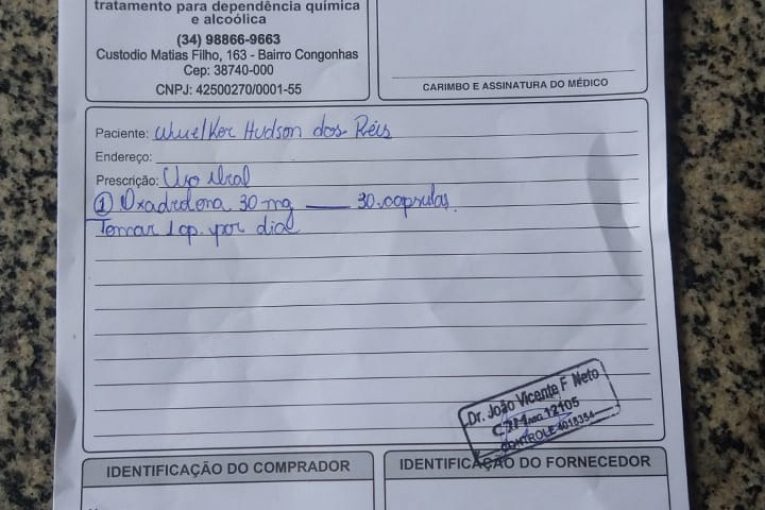 tratamento para dependência química
e alcoólica
(34) 98866-9663
Custodio Matias Filho, 163 - Bairro Congonhas
Cep: 38740-000
CNPJ: 42500270/0001-55
CARIMBO E ASSINATURA DO MÉDICO
Paciente: Wuelker Hudson dos Reis
Endereço:
Prescrição: Uso Oral
① Oxadrolona 30 mg — 30 capsulas
Tomar 1 cp. por dia
Dr. João Vicente F Neto
CRM MG 12105
CONTROLE 4018354
IDENTIFICAÇÃO DO COMPRADOR
IDENTIFICAÇÃO DO FORNECEDOR